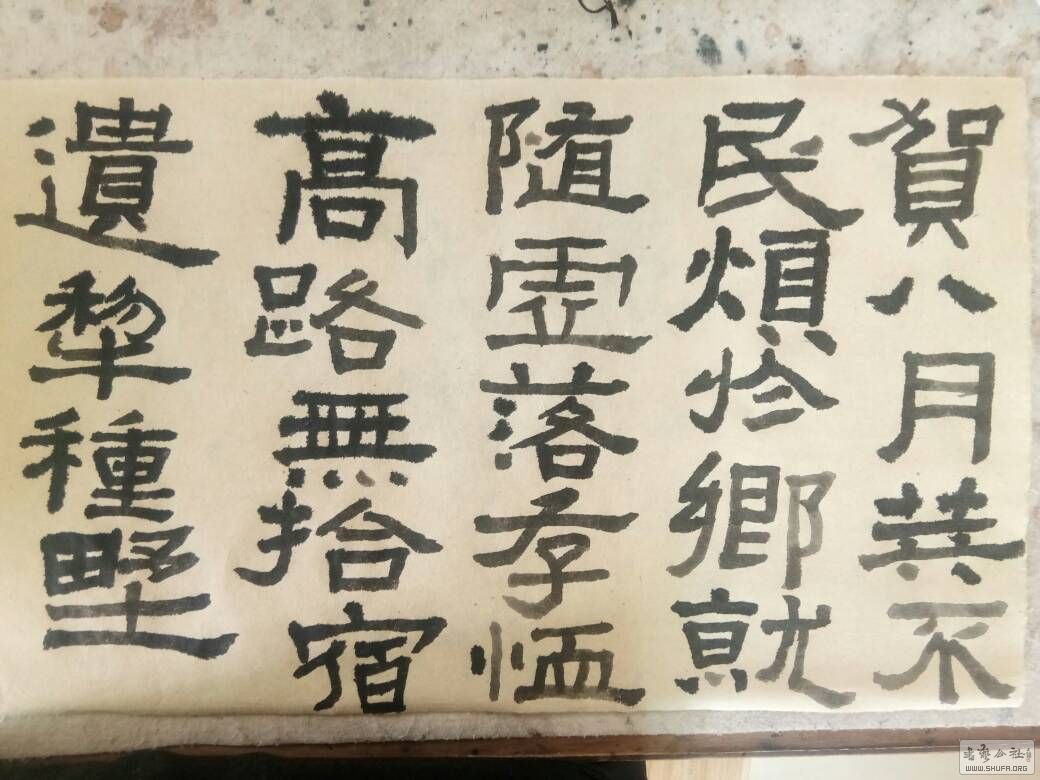 賀八月筭不
民煩於鄉就
隨虛落存恤
高路無拾宿
遺犁種野
書藝公社
WWW.SHUFA.ORG